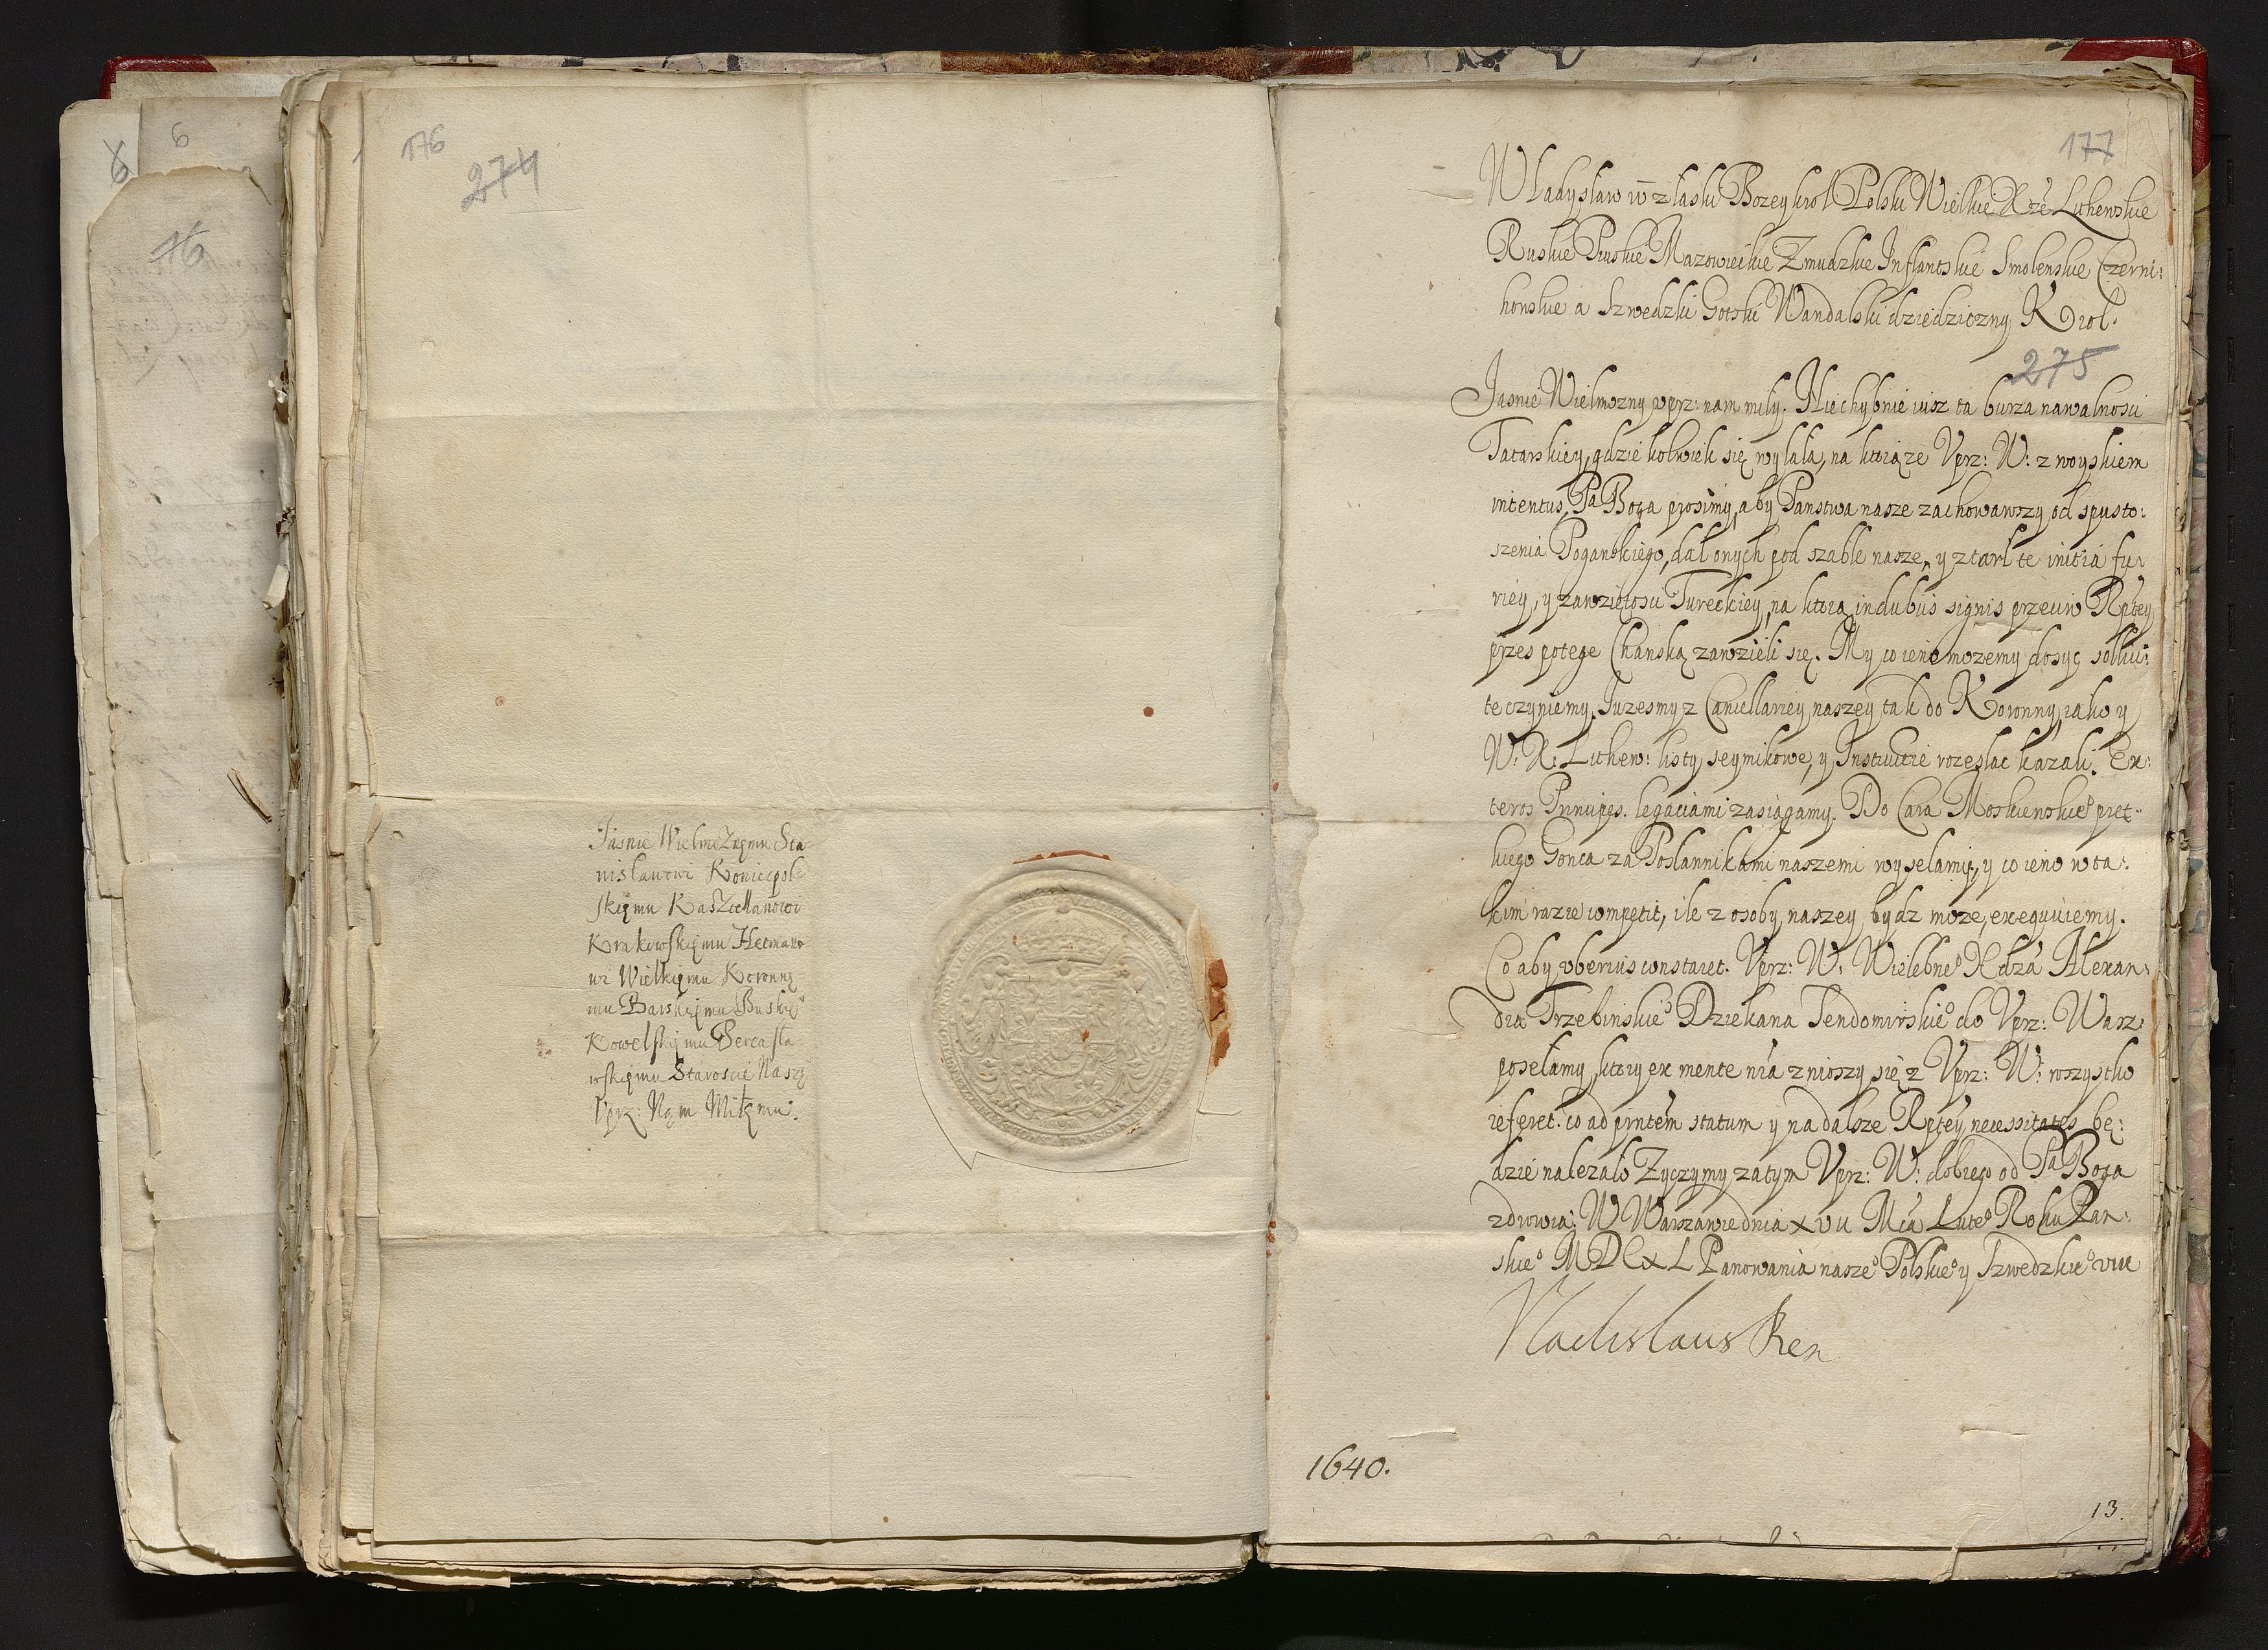 6
6
16
176
274
Jaśnie Wielmożnemu Sta-
nisławowi Koniecpol-
skiemu Kasztellanowi
Krakowskiemu Hetmano-
wi Wielkiemu Koronne-
mu Barskiemu Buskie
Kowelskiemu
wskiemu Staroscie Nasze
Vprz: Nam Miłemu.
177
Władysław IV z łaski Bozey krol Polski Wielkie Xże Lithewskie
Ruskie Pruskie Mazowieckie Zmudzkie Inflantskie Smolenskie Czerni:
howskie a Szwedzki Gotski Wandalski dziedziczny Krol.
275
Jasnie Wielmozny vprz: nam miły. Niechybnie iusz ta burza nawalnosci
Tatarskiey, gdziekolwiek się wylała, na ktorąże Vprz: W: z woyskiem
intentus, Pa Boga prosimy, aby Panstwa nasze zachowawszy od spusto:
szenia Poganskiego, dał onych pod szable nasze, y ztarł te initia fu:
riey, y zawziętosci Tureckiey, na ktorą indubiis signis przeciw Rptey
przes potege Chanską zawzieli się. My co ieno mozemy dosyc sollici:
te czyniemy. Juzesmy z Cancellariey naszey tak do Koronny, iako y
W: X: Lithew: listy seymikowe, y Instructie rozesłac kazali. Ex:
teros Principes legaciami zasiągamy. Do Cara Moskiewskie° pręt:
kiego Gonca za Posłannikami naszemi wyselamy, y co ieno w ta:
kim razie competit, ile z osoby naszey bydz moze, exequuiemy.
Co aby vberius constaret. Vprz: W: Wielebne° Xdza Alexan:
dra Trzebinskie° Dziekana Sendomirskie° do Vprz: Warz
poselamy, ktory ex mente nra zniozszy się z Vprz: W: wszystko
referet. co ad pnntem statum y na dalsze Rptey necessitates bę:
dzie nalezało Zyczymy zatym Vprz: W: dobrego od Pa Boga
zdrowia: W Warszawie dnia XVII Mca Lute° Roku Pan:
skie° MDCXL Panowania nasze° Polskie° y Szwedzkie° VIII
Vladislaus Rex
1640.
13.